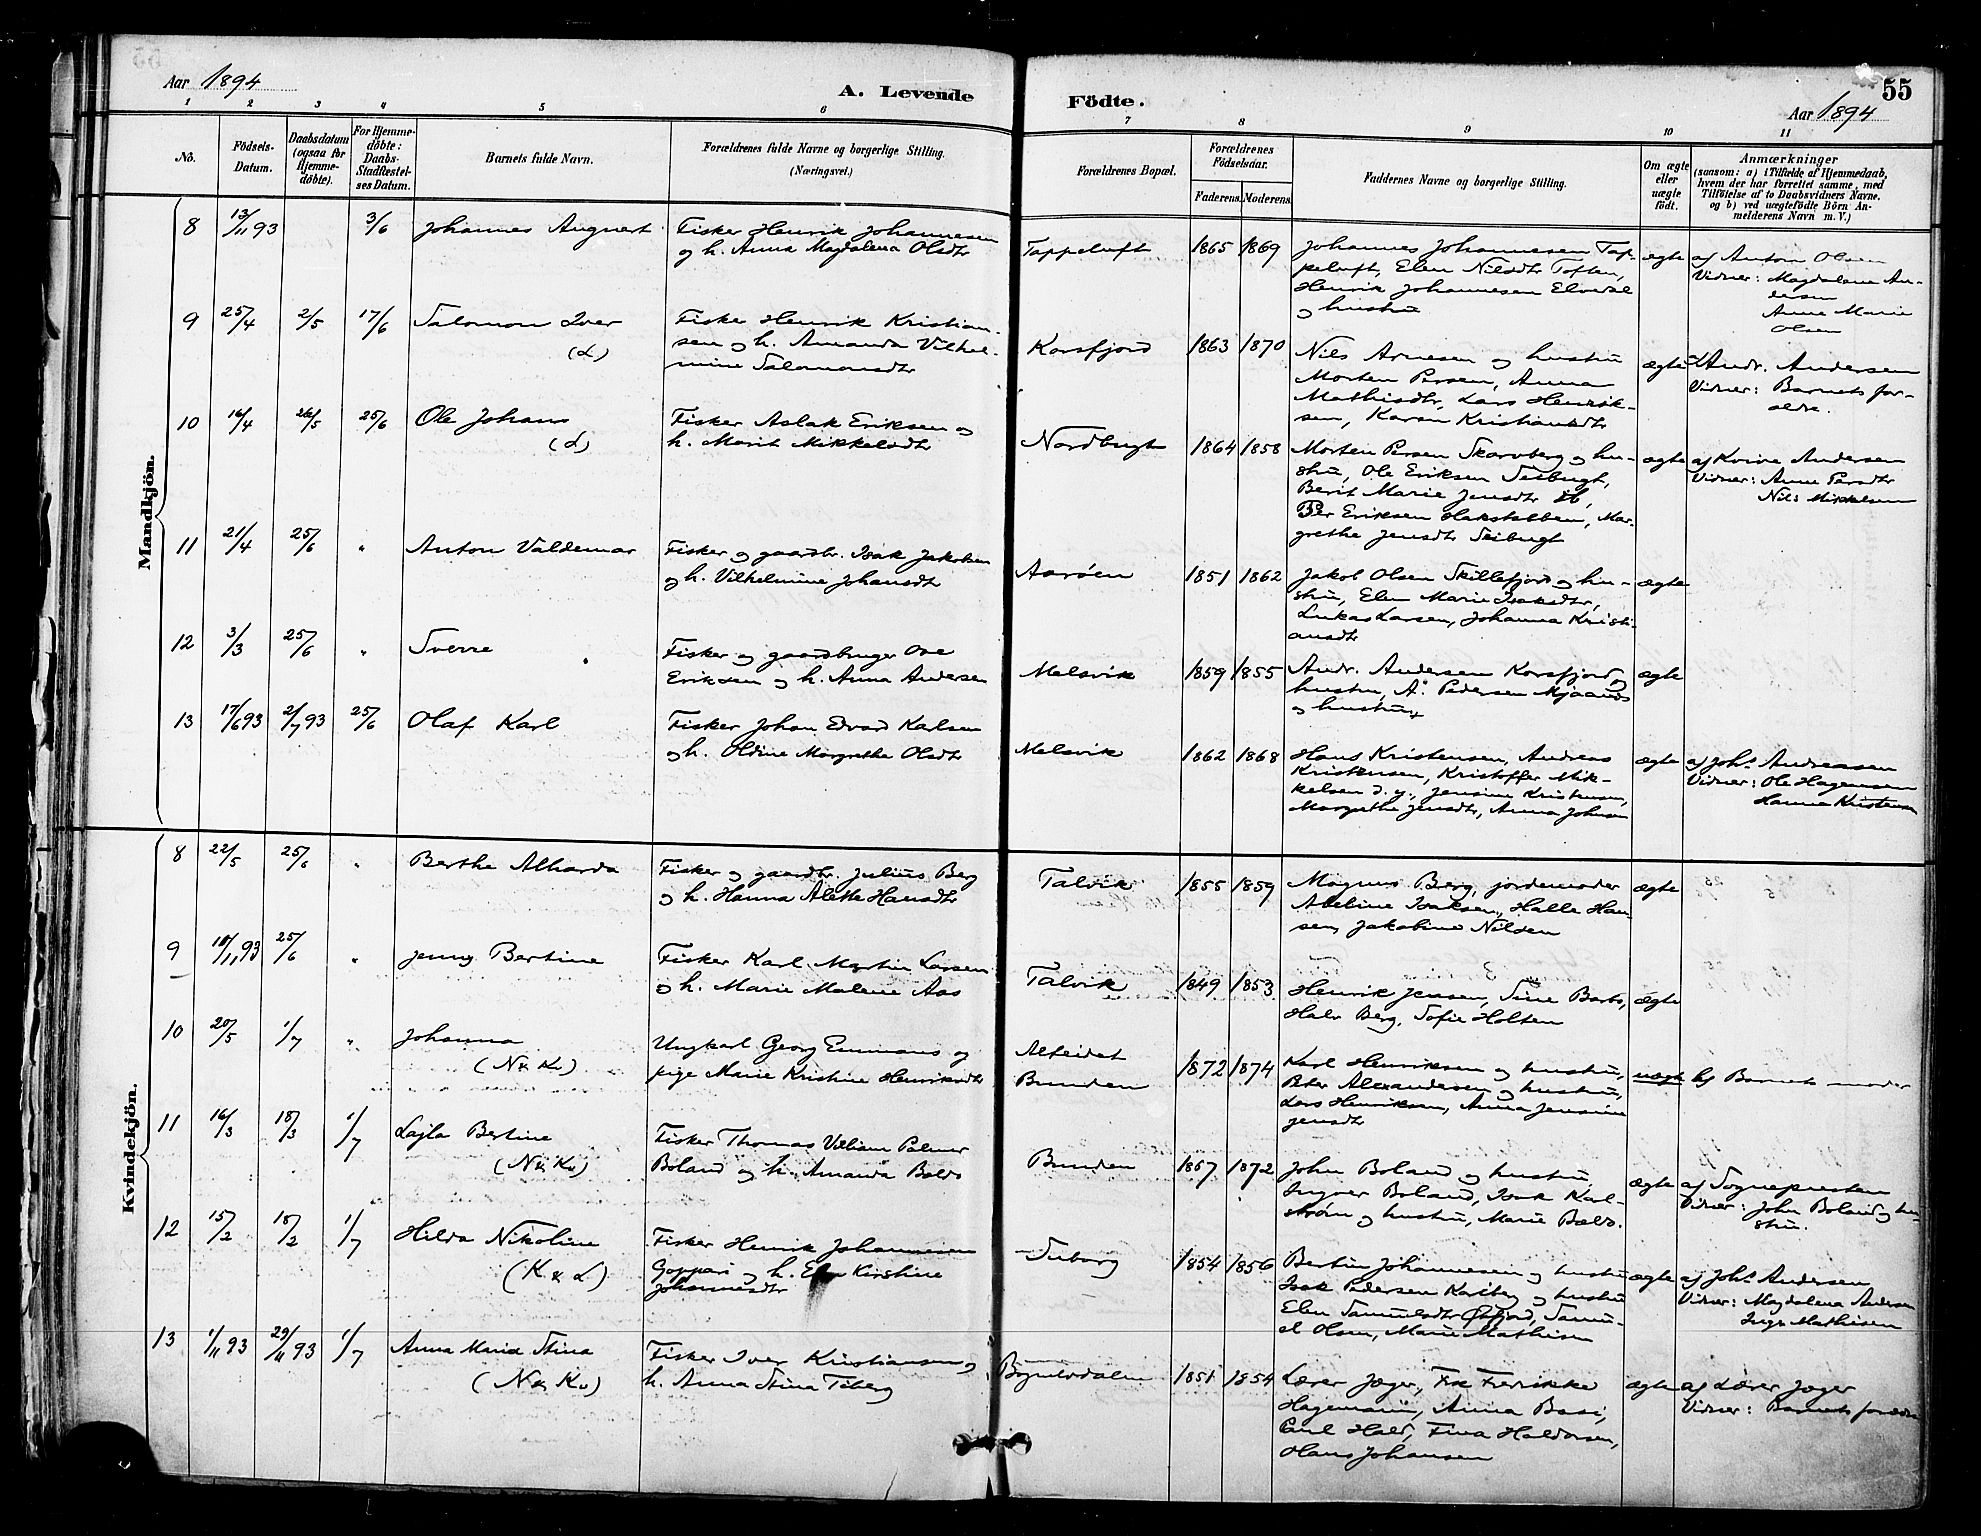 Aar 1894
A. Levende
Födte.
Aar 1894
55
1 2 3 4 5 6 7 8 9 10 11
No.
Födsels-
Datum.
Daabsdatum
(ogsaa for
Hjemme-
döbte).
For Hjemme-
döbte:
Daabs-
Stadfæstel-
ses Datum.
Barnets fulde Navn.
Forældrenes fulde Navne og borgerlige Stilling.
(Næringsvei.)
Forældrenes Bopæl.
Forældrenes
Födselsaar.
Faderens. Moderens.
Faddernes Navne og borgerlige Stilling.
Om ægte
eller
uægte
født.
Anmærkninger
(saasom: a) i Tilfælde af Hjemmedaab,
hvem der har forrettet samme, med
Tilföielse af to Daabsvidners Navne,
og b) ved uægtefødte Börn An-
melderens Navn m. V.)
Mandkjön.
8 13/11 93 3/6 Johannes August
Fisker Henrik Johannesen
og h. Anna Magdalena Olsdtr
Tappeluft 1865 1869
Johannes Johannesen Tap-
peluft, Elen Nilsdtr Toften,
Henrik Johannesen
og hustru
ægte
af Anton Olsen
Vidner: Magdalena An-
dersen
Anne Marie
Olsen
9 25/4 2/5 17/6 Salomon Iver
(L)
Fisker Henrik Kristian-
sen og h. Amanda Vilhel-
mine Salomonsdtr
Korsfjord 1863 1870
Nils Arnesen og hustru
Morten Persen, Anna
Mathisdtr, Lars Henrik-
sen, Karen Kristiansdtr
ægte
Andr. Andersen
Vidner: Barnets for-
ældre.
10 16/4 26/5 25/6 Ole Johans
(L)
Fisker Aslak Eriksen og
h. Marit Mikkelsdtr
Nordbugt 1864 1858
Morten Persen Skarvberg og hu-
stru, Ole Eriksen Seibugt,
Berit Marie Jensdtr
Per Eriksen Hakstabben, Mar-
grethe Jensdtr Seibugt
ægte
af Andersen
Vidner: Anne Persdtr
Nils Mikkelsen
11 21/4 25/6 " Anton Valdemar
Fisker og gaardbr. Isak Jakobsen
og h. Vilhelmine Johansdtr
Aarøen 1851 1862
Jakob Olsen Skillefjord og hu-
stru, Elen Marie Isaksdtr,
Lukas Larsen, Johanna Kristi-
ansdtr
ægte
12 3/3 25/6 " Sverre
Fisker og gaardbruger Ove
Eriksen og h. Anna Andersen
Melsvik 1859 1855
Andr. Andersen Korsfjord og
hustru, A. Pedersen
og hustru
ægte
13 17/6 93 2/7 93 25/6 Olaf Karl
Fisker Johan Edvard Karlsen
og h. Oldine Margrethe Olsdtr
Melsvik 1862 1868
Hans Kristensen, Andreas
Kristensen, Kristoffer Mik-
kelsen d. y., Jensine Kristensen,
Margrethe Jensdtr, Anna Johnsen
ægte
af Johs. Andreassen
Vidner: Ole Hagensen
Hanna Kristensen
Kvindekjön.
8 22/5 25/6 " Berthe Alharda
Fisker og gaardbr. Julius Berg
og h. Hanna Aletke Hansdtr
Talvik 1855 1859
Magnus Berg, jordemoder
Abeline Isaksen, Halle Han-
sen, Jakobine Nilsen
ægte
9 18/11 93 25/6 " Jenny Bertine
Fisker Karl Martin Larsen
og h. Marie Malene Aas
Talvik 1849 1853
Henrik Jensen, Sine Barbo,
Halv Berg, Sofie Holten
ægte
10 20/5 1/7 " Johanna
(N & Kv)
Ungkarl Georg Emmanus og
pige Marie Kristine Henriksdtr
Alteidet
Bunden
1872 1874
Karl Henriksen og hustru,
Peter Alexandersen og hustru,
Lars Henriksen, Anna Jensine
Jensdtr
uægte
af Barnets moder
11 16/3 18/3 1/7 Lajla Bertine
(N & Kv)
Fisker Thomas Villiam Palmer
Boland og h. Amanda Balds
Bunden 1867 1872
John Boland og hustru,
Ingver Boland, Isak Karl-
strøm og hustru, Marie Balds.
ægte
af Sognepresten
Vidner: John Boland og hu-
stru.
12 15/2 18/2 1/7 Hilda Nikoline
(K & L)
Fisker Henrik Johannesen
Goppari og h. Elen Kirstine
Johannesdtr
Suborg 1854 1856
Bertin Johannesen og hustru
Isak Pedersen Karlberg og hustru
Elen Samuelsdtr Øksfjord, Samu-
el Olsen, Marie Mathisen
ægte
af Johs. Andersen
Vidner: Magdalena Andersen
Inga Mathisen
13 1/11 93 29/11 93 1/7 Anna Maria Stina
(N & Kv)
Fisker Iver Kristiansen og
h. Anna Stina Fiberg
Bognelvdalen 1851 1854
Lærer Jæger, Frk Fredrikke
Hagemann, Anna Basi,
Carl Hald, Fina Haldorsen,
Hans Johansen
ægte
af Lærer Jæger
Vidner: Barnets forældre